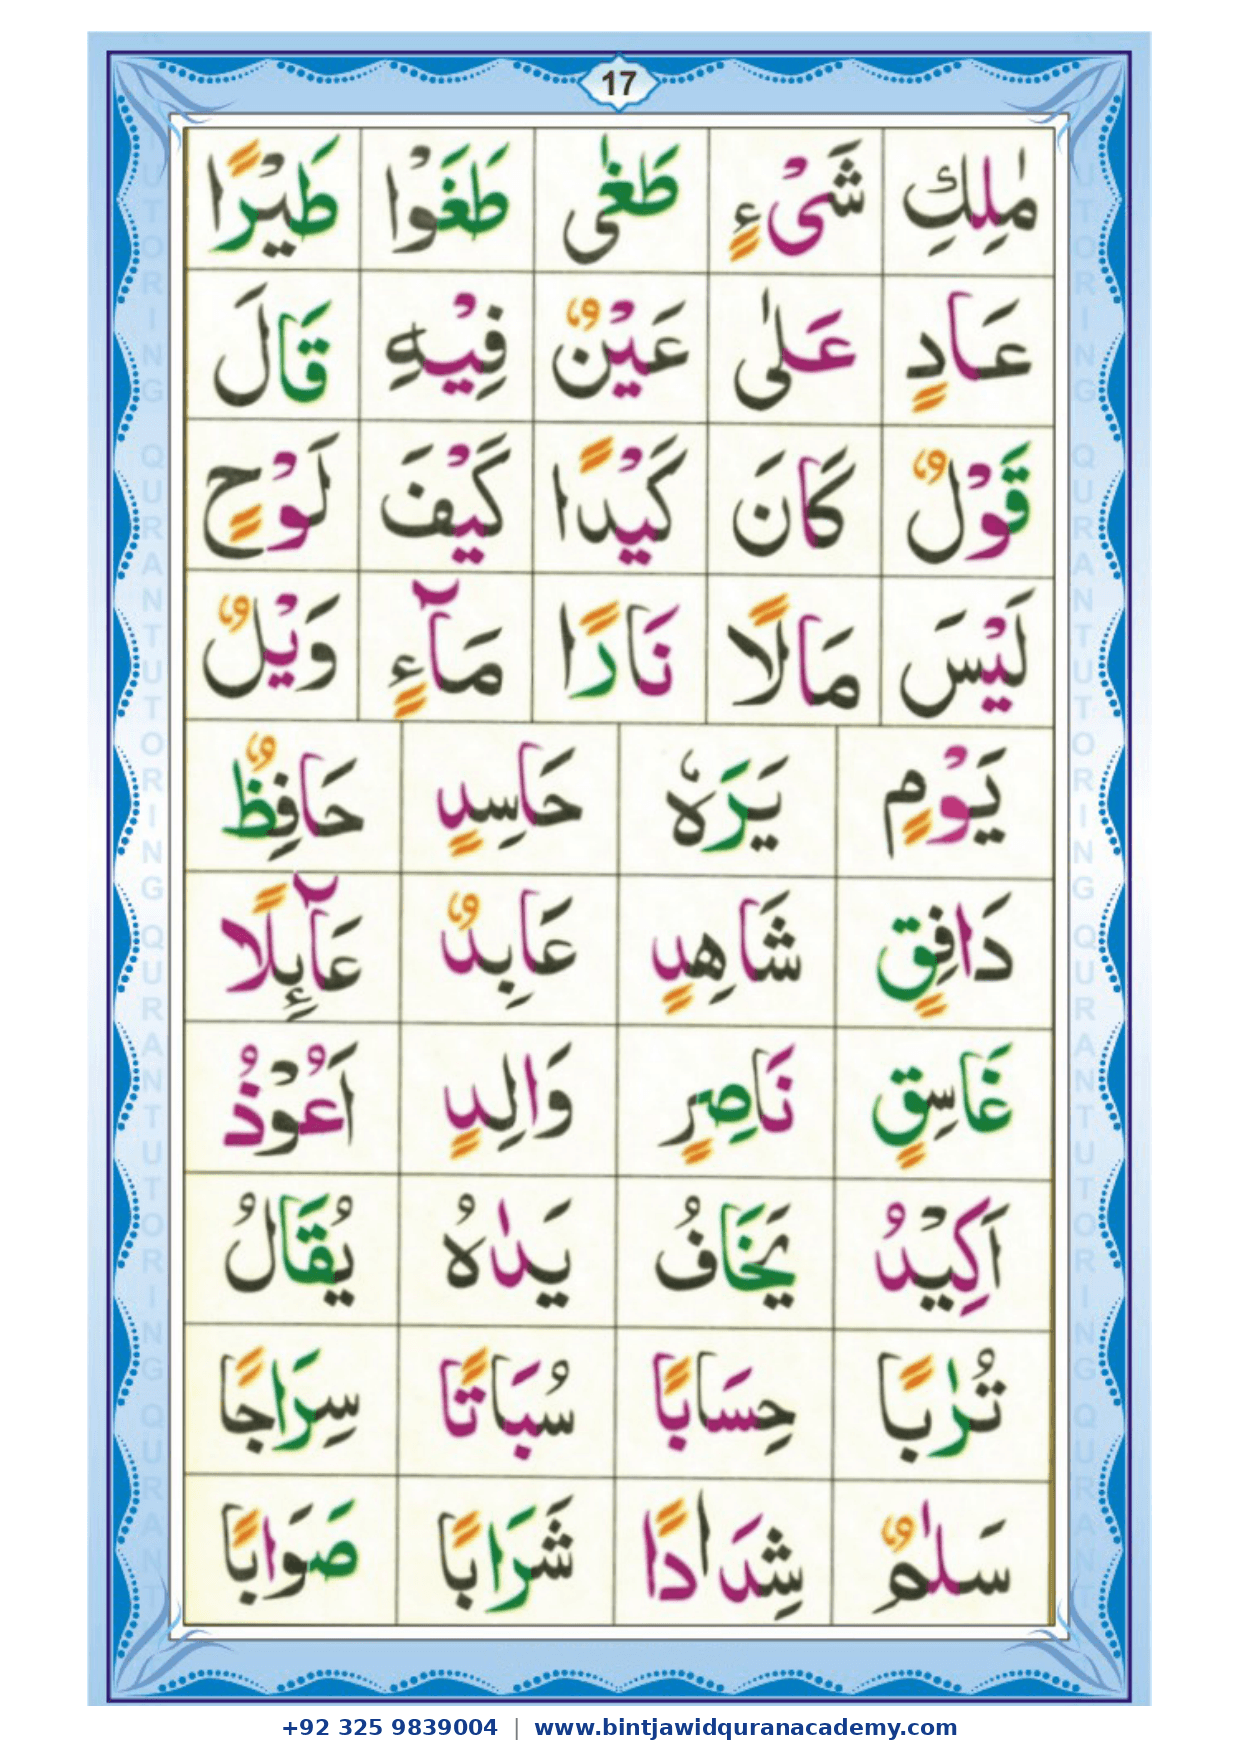 17
مٰلِكِ شَیْءٍ طَغٰی طَغَوْا طَیْرًا
عَادٍ عَلٰی عَیْنٌ فِیْهِ قَالَ
قَوْلٌ كَانَ كَیْدًا كَیْفَ لَوْحٍ
لَیْسَ مَالًا نَارًا مَآءٍ وَیْلٌ
یَوْمٍ یَرَهٗ حَاسِدٍ حَافِظٌ
دَافِقٍ شَاهِدٍ عَابِدٌ عَآىِٕلًا
غَاسِقٍ نَاصِرٍ وَالِدٍ اَعُوْذُ
اَكِیْدُ یَخَافُ یَدٰهُ یُقَالُ
تُرٰبًا حِسَابًا سُبَاتًا سِرَاجًا
سَلٰمٌ شِدَادًا شَرَابًا صَوَابًا
+92 325 9839004 | www.bintjawidquranacademy.com